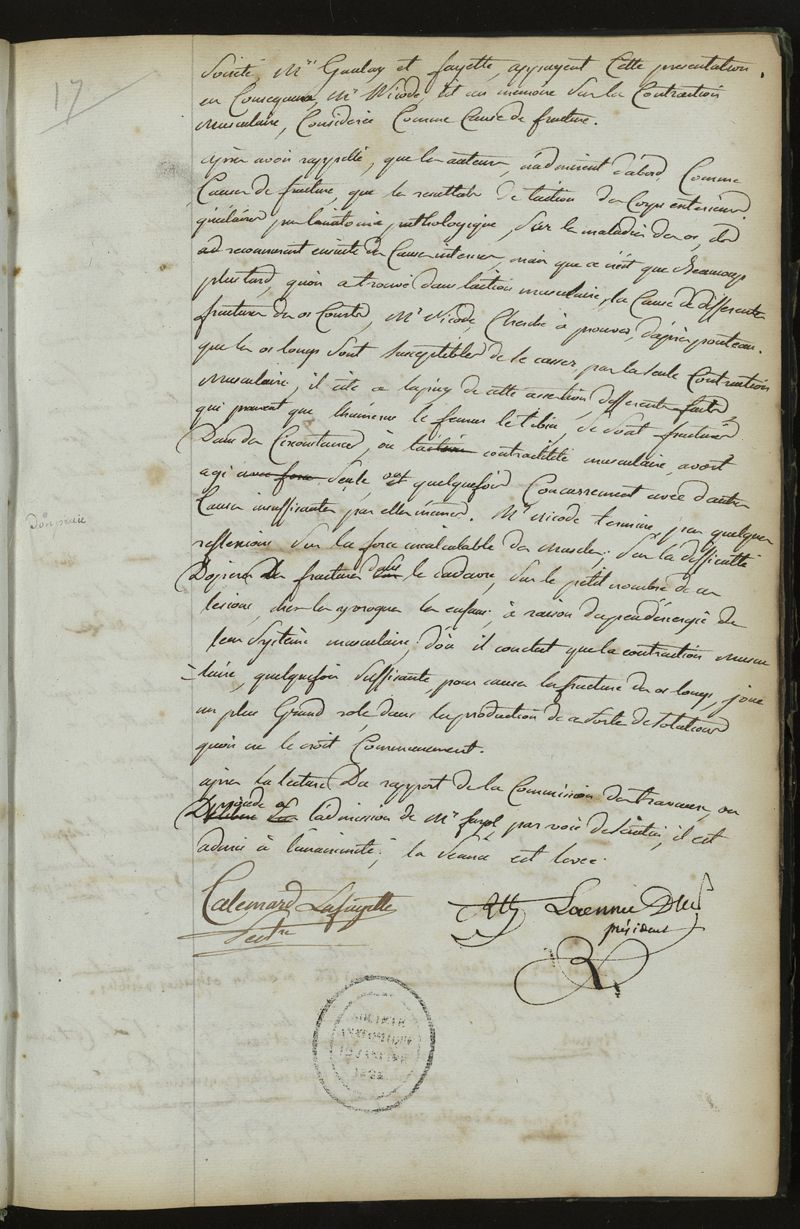 17
Société, Mrs Gaulay et fayette, appuyent Cette presentation.
en Consequence, Mr Nicod, lit un mémoire Sur la Contraction
musculaire, Considerée Comme Cause de fracture.
après avoir rappellé, que les auteurs, n'admirent d'abord, Comme
Causes de fracture, que le resultat de l'action des Corps exterieurs,
qu'éclairés par l'anatomie pathologique, Sur les maladies des os, ils
ad reconnurent ensuite des Causes internes, mais que ce n'est que beaucoup
plus tard, qu'on a trouvé dans l'action musculaire, la Cause de differentes
fractures des os Courts, Mr Nicod, Cherche à prouver, d'après pouteau.
que les os longs Sont Susceptibles de se casser, par la seule Contraction
Musculaire, il cite a l'apuy de cette assertion, differents faits
qui prouvent que l'humerus le femur le tibia, se sont fracturés
Dans des Circonstances, où l'action contractilité musculaire, avait
agi avec force Seule, et quelquefois Concurremment avec d'autres
Causes insuffisantes par elles mêmes. Mr nicod termine, par quelques
reflexions Sur la force incalculable des muscles; Sur la difficulté
D'opérer des fractures dans le cadavre, Sur le petit nombre de ces
lésions, chez les yvrognes les enfans à raison du peu d'énergie de
leur Systême musculaire d'où il conclut que la contraction muscu
-laire, quelquefois Suffisante, pour causer la fracture des os longs, joue
un plus Grand role, dans la production de ce sorte de solutions
qu'on ne le croit Communément.
après la lecture Du rapport de la Commission des travaux, on
Délibere procède Sur à l'admission de Mr par voie de Scrutin, il est
admis à l'unanimité; la Séance est levée.
Calemard Lafayette
Sectre
Laennec DM
président
SOCIÉTÉ
ANATOMIQUE